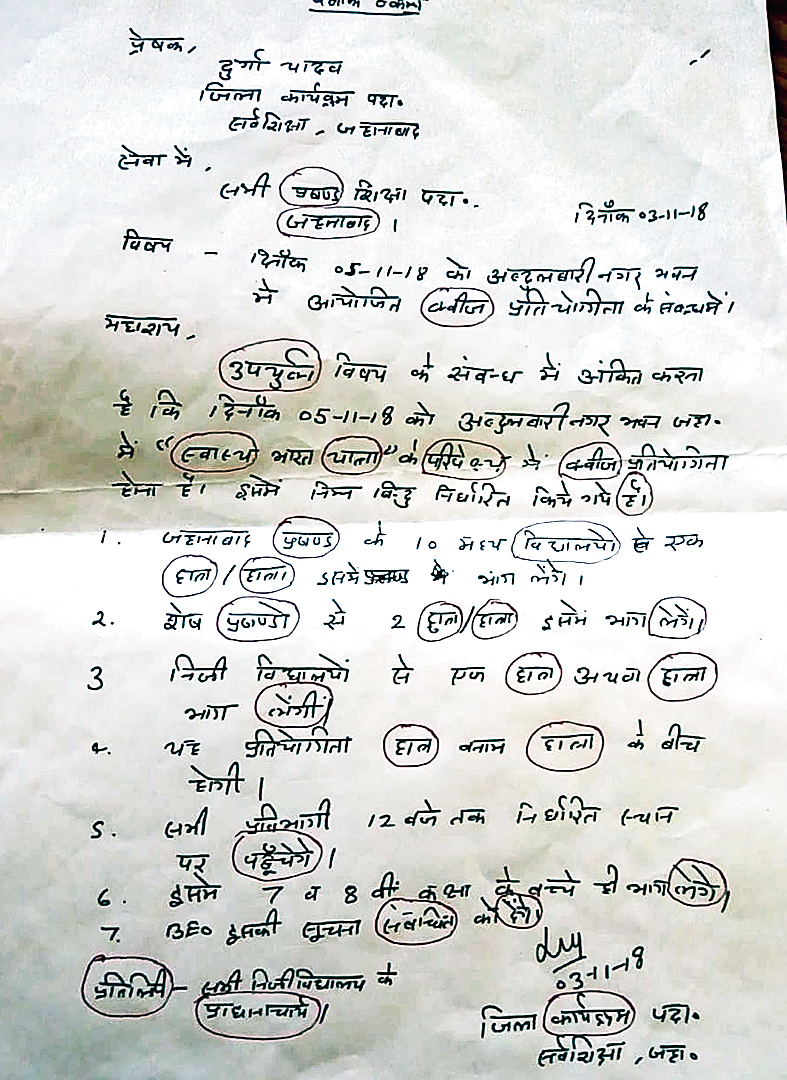 प्रेषक,
दुर्गा यादव
जिला कार्यक्रम पदा०
सर्वशिक्षा, जहानाबाद
सेवा में,
सभी प्रखण्ड शिक्षा पदा०.
दिनाँक ०3-11-18
जहानाबाद।
विषय - दिनाँक ०5-11-18 को अब्दुलबारी नगर भवन
मे आयोजित क्वीज प्रतियोगिता के संबन्धमें।
महाशय,
उपर्युक्त विषय के संबन्ध में अंकित करना
है कि दिनाँक ०5-11-18 को अब्दुलबारी नगर भवन जहा०
में "स्वास्थ्य भारत यात्रा" के परिपेक्ष्य में क्वीज प्रतियोगिता
होना है। इसमें निम्न बिन्दु निर्धारित किये गये है।
1. जहानाबाद प्रखण्ड के 10 मध्य विद्यालयो से एक
छात्र / छात्रा इसमे भाग लेंगे।
2. शेष प्रखण्डो से 2 छात्र/छात्रा इसमें भाग लेगें।
3 निजी विद्यालयों से एक छात्र अथवा छात्रा
भाग लेंगी।
4. यह प्रतियोगिता छात्र बनाम छात्रा के बीच
होगी।
5. सभी प्रतिभागी 12 बजे तक निर्धारित स्थान
पर पहूँचेगे।
6. इसमे 7 व 8 वीं कक्षा के बच्चे ही भाग लेगे।
7. BEO इसकी सूचना संबन्धित को देंगे।
०3-11-18
प्रतिलिपी - सभी निजी विद्यालय के
प्राधानाचार्य।
जिला कार्यक्रम पदा०
सर्वशिक्षा, जहा०